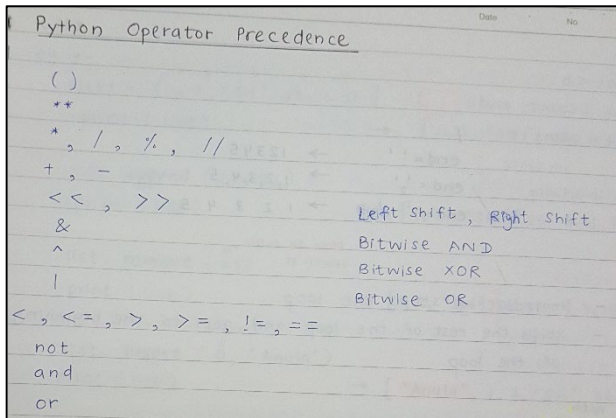 Date No.
Python Operator Precedence
( )
**
*, /, %, //
+, -
<<, >> Left Shift, Right Shift
& Bitwise AND
^ Bitwise XOR
| Bitwise OR
<, <=, >, >=, !=, ==
not
and
or